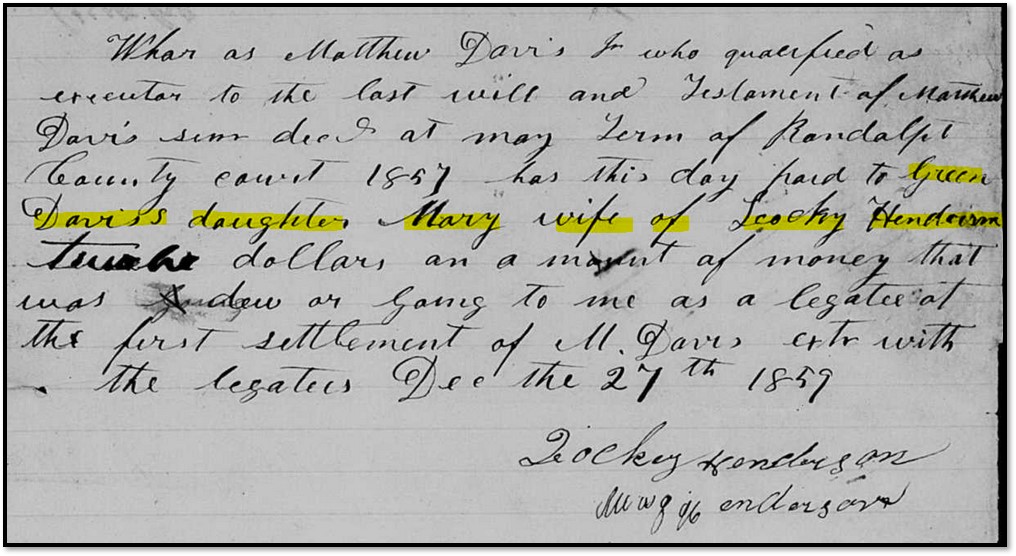 Whar as Matthew Davis Jr who qualified as
executor to the last will and Testament of Matthew
Davis senr decd at may Term of Randolph
County court 1857 has this day paid to Green
Davis's daughter Mary wife of Lockey Henderson
twelve dollars an a mount of money that
was dew or going to me as a legatee at
the first settlement of M. Davis extr with
the legatees Dec the 27th 1859
Lockey Henderson
Henderson